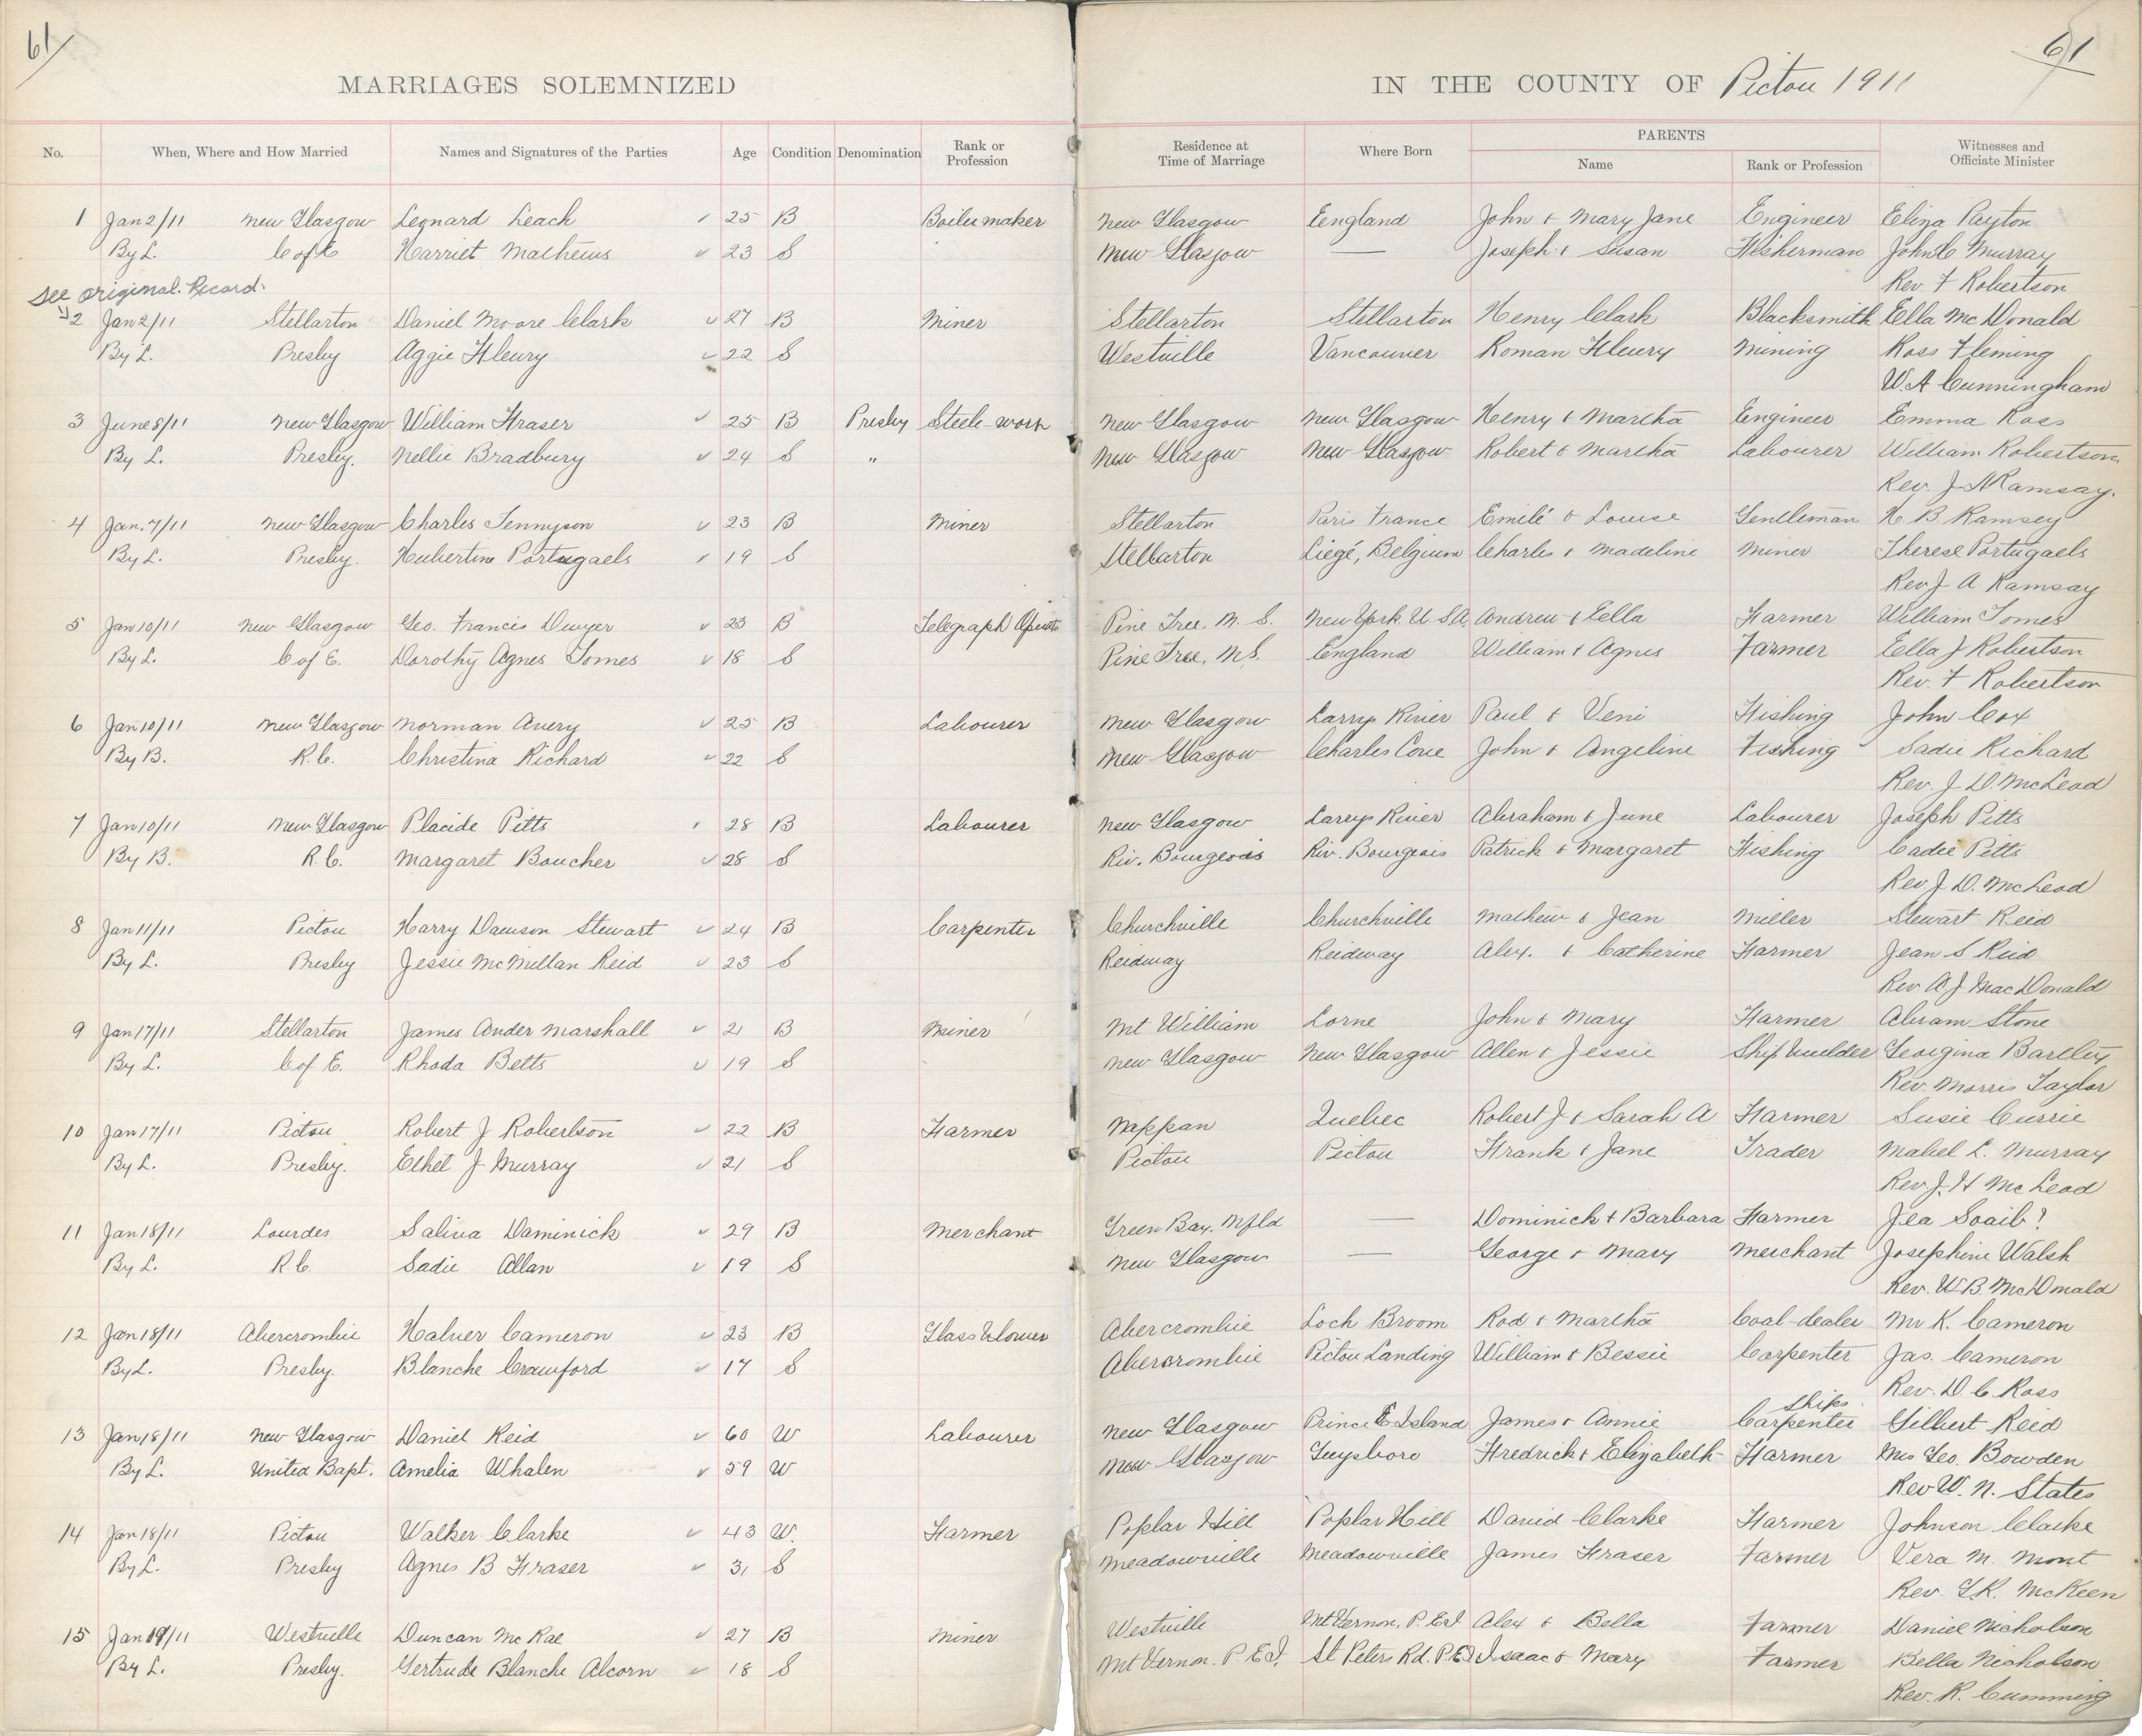 61
61
MARRIAGES SOLEMNIZED IN THE COUNTY OF Pictou 1911
No. When, Where and How Married Names and Signatures of the Parties Age Condition Denomination Rank or Profession Residence at Time of Marriage Where Born PARENTS Name Rank or Profession Witnesses and Officiate Minister
1 Jan 2/11 New Glasgow Leonard Leach 25 B Boilermaker New Glasgow England John & Mary Jane Engineer Eliza Payton
By L. C of E Harriet Mathews 23 S New Glasgow — Joseph & Susan Fisherman John C Murray
Rev. F Robertson
See original Record
2 Jan 2/11 Stellarton Daniel Moore Clark 27 B Miner Stellarton Stellarton Henry Clark Blacksmith Ella McDonald
By L. Presby Aggie Fleury 22 S Westville Vancouver Roman Fleury Mining Ross Fleming
W A Cunningham
3 June 8/11 New Glasgow William Fraser 25 B Presby Steele-work New Glasgow New Glasgow Henry & Martha Engineer Emma Ross
By L. Presby. Nellie Bradbury 24 S " New Glasgow New Glasgow Robert & Martha Labourer William Robertson
Rev. J A Ramsay.
4 Jan. 7/11 New Glasgow Charles Tennyson 23 B Miner Stellarton Paris France Emilé & Louise Gentleman H. B. Ramsey
By L. Presby. Hubertine Portugaels 19 S Stellarton Liegé, Belgium Charles & Madeline Miner Therese Portugaels
Rev J A Ramsay
5 Jan 10/11 New Glasgow Geo. Francis Dwyer 23 B Telegraph Operator Pine Tree. N. S. New York. U.S.A. Andrew & Ella Farmer William Tomes
By L. C of E. Dorothy Agnes Tomes 18 S Pine Tree, N.S. England William & Agnes Farmer Ella J Robertson
Rev. F Robertson
6 Jan 10/11 New Glasgow Norman Avery 25 B Labourer New Glasgow Larrys River Paul & Veni Fishing John Cox
By B. R.C. Christina Richard 22 S New Glasgow Charles Cove John & Angeline Fishing Sadie Richard
Rev. J D. McLeod
7 Jan 10/11 New Glasgow Placide Pitts 28 B Labourer New Glasgow Larrys River Abraham & June Labourer Joseph Pitts
By B. R.C. Margaret Boucher 28 S Riv. Bourgeois Riv. Bourgeois Patrick & Margaret Fishing Cadie Pitts
Rev J. D. McLeod
8 Jan 11/11 Pictou Harry Dawson Stewart 24 B Carpenter Churchville Churchville Mathew & Jean Miller Stewart Reid
By L. Presby Jessie McMillan Reid 23 S Reidway Reidway Alex. & Catherine Farmer Jean S Reid
Rev A J MacDonald
9 Jan 17/11 Stellarton James Ander Marshall 21 B Miner Mt William Lorne John & Mary Farmer Abram Stone
By L. C of E. Rhoda Betts 19 S New Glasgow New Glasgow Allen & Jessie Ship builder Georgina Bartley
Rev. Morris Taylor
10 Jan 17/11 Pictou Robert J Robertson 22 B Farmer Nappan Quebec Robert J & Sarah A Farmer Susie Currie
By L. Presby. Ethel J Murray 21 S Pictou Pictou Frank & Jane Trader Mabel L. Murray
Rev. J. H McLeod
11 Jan 18/11 Lourdes Saliva Daminick 29 B Merchant Green Bay, Nfld — Dominick & Barbara Farmer Jea Soaib?
By L. R.C. Sadie Allan 19 S New Glasgow — George & Mary Merchant Josephine Walsh
Rev. W. B. McDonald
12 Jan 18/11 Abercrombie Halver Cameron 23 B Glass blower Abercrombie Loch Broom Rod & Martha Coal-dealer Mr K. Cameron
By L. Presby. Blanche Crawford 17 S Abercrombie Pictou Landing William & Bessie Carpenter Jas. Cameron
Rev. D. C. Ross
Ships
13 Jan 18/11 New Glasgow Daniel Reid 60 W Labourer New Glasgow Prince E Island James & Annie Carpenter Gilbert Reid
By L. United Bapt. Amelia Whalen 59 W New Glasgow Guysboro Fredrick & Elizabeth Farmer Mrs Geo. Bowden
Rev W. N. States
14 Jan 18/11 Pictou Walker Clarke 43 W. Farmer Poplar Hill Poplar Hill David Clarke Farmer Johnson Clarke
By L. Presby Agnes B Fraser 31 S Meadowville Meadowville James Fraser Farmer Vera M. Mont
Rev. G.R. McKeen
15 Jan 19/11 Westville Duncan McRae 27 B Miner Westville Mt Vernon, P.E.I Alex & Bella Farmer Daniel Nicholson
By L. Presby. Gertrude Blanche Alcorn 18 S Mt Vernon. P.E.I. St Peters Rd. P.E.I Isaac & Mary Farmer Bella Nicholson
Rev. R. Cumming